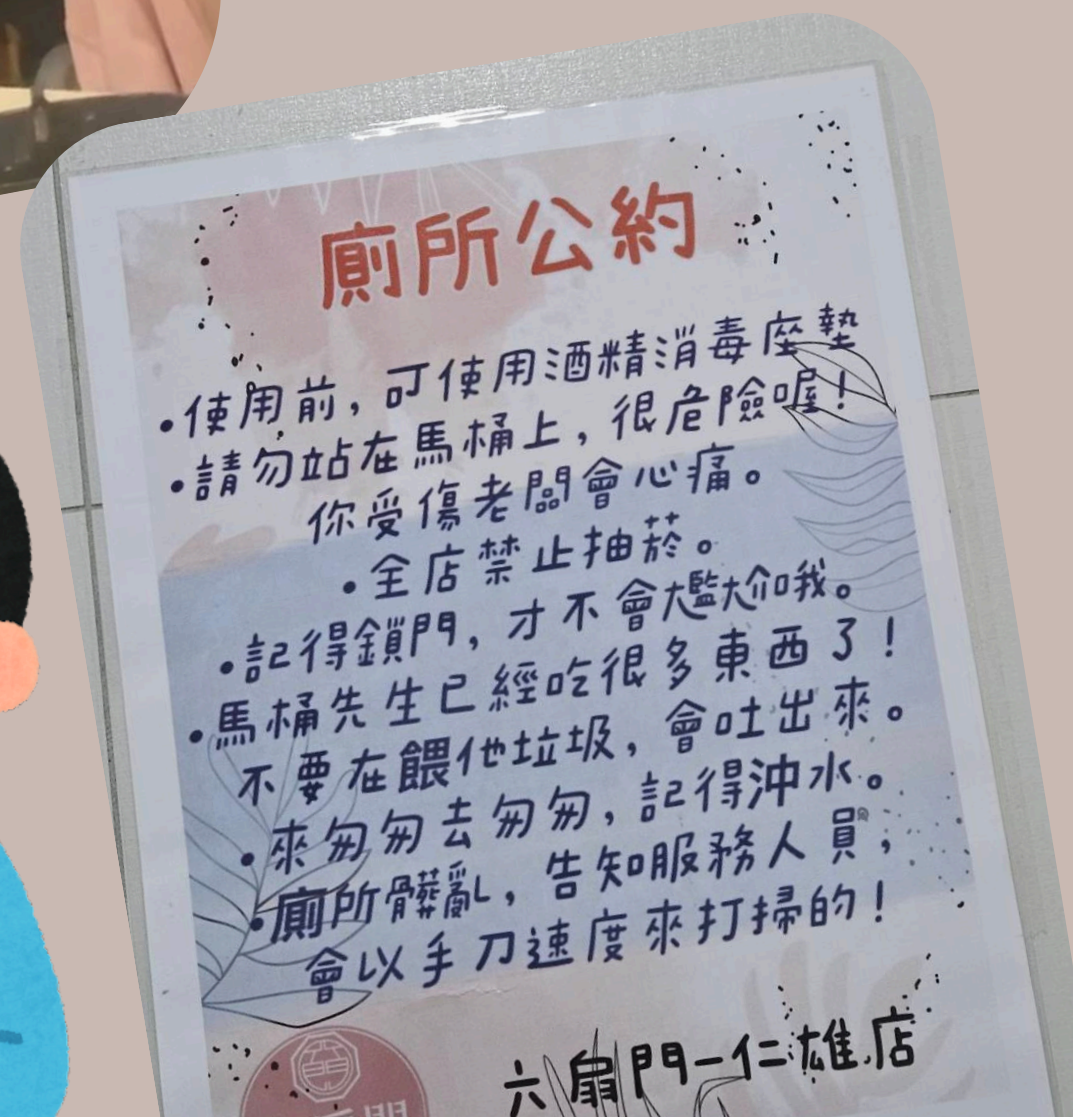 廁所公約
•使用前，可使用酒精消毒座墊
•請勿站在馬桶上，很危險喔！
你受傷老闆會心痛。
•全店禁止抽菸。
•記得鎖門，才不會尷尬哦。
•馬桶先生已經吃很多東西了！
不要在餵他垃圾，會吐出來。
•來匆匆去匆匆，記得沖水。
•廁所髒亂，告知服務人員，
會以手刀速度來打掃的！
六扇門－仁雄店